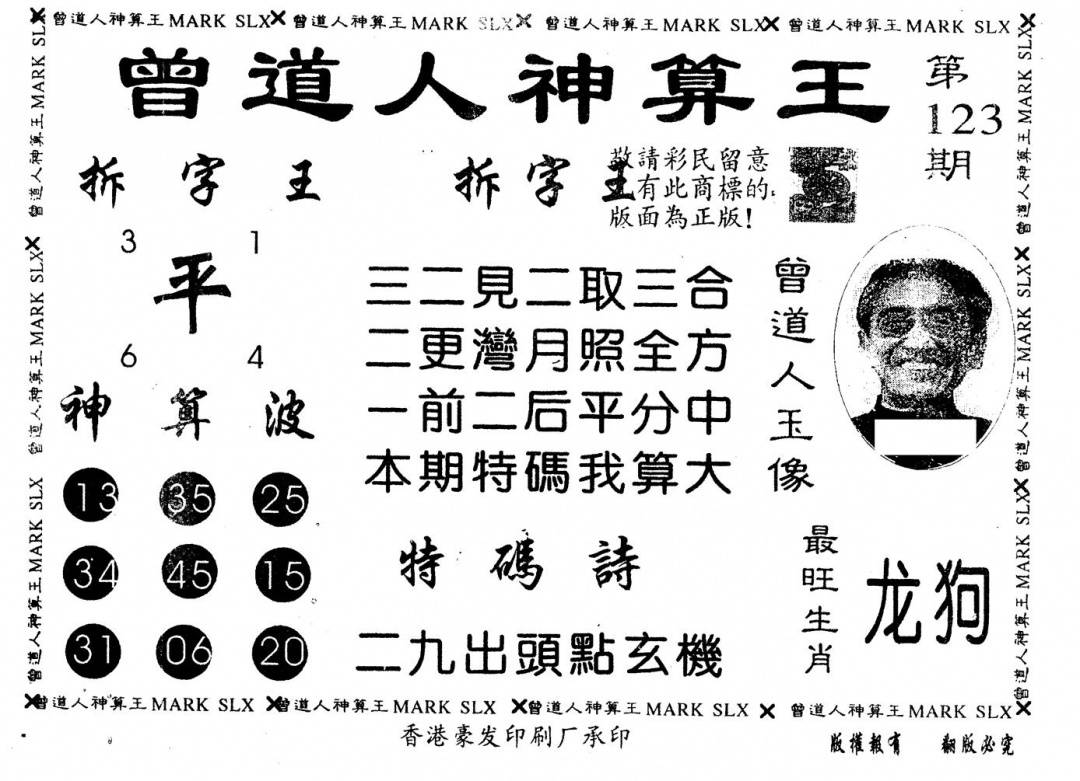 曾道人神算王MARK SLX 曾道人神算王MARK SLX 曾道人神算王MARK SLX 曾道人神算王MARK SLX
曾道人神算王
第
123
期
拆字王
拆字王
敬請彩民留意
有此商標的
版面為正版!
3 1
平
6 4
神算波
13 35 25
34 45 15
31 06 20
三二見二取三合
二更灣月照全方
一前二后平分中
本期特碼我算大
特碼詩
二九出頭點玄機
曾道人玉像
最旺生肖
龙狗
曾道人神算王MARK SLX
曾道人神算王MARK SLX
曾道人神算王MARK SLX
曾道人神算王MARK SLX
曾道人神算王MARK SLX
曾道人神算王MARK SLX
曾道人神算王MARK SLX 曾道人神算王MARK SLX 曾道人神算王MARK SLX 曾道人神算王MARK SLX
香港豪发印刷厂承印
版權報有 翻版必究